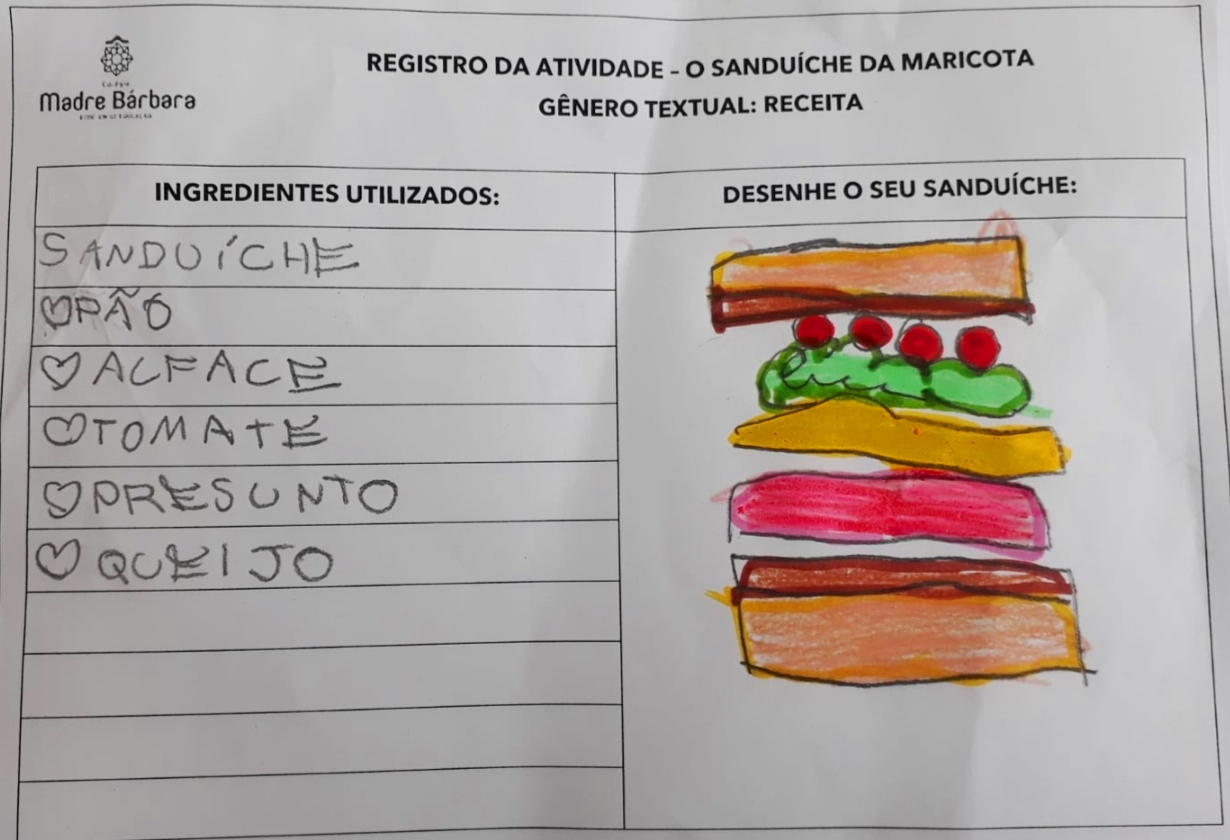 Colégio
Madre Bárbara
REGISTRO DA ATIVIDADE - O SANDUÍCHE DA MARICOTA
GÊNERO TEXTUAL: RECEITA
INGREDIENTES UTILIZADOS:
SANDUÍCHE
♡PÃO
♡ALFACE
♡TOMATE
♡PRESUNTO
♡QUEIJO
DESENHE O SEU SANDUÍCHE: